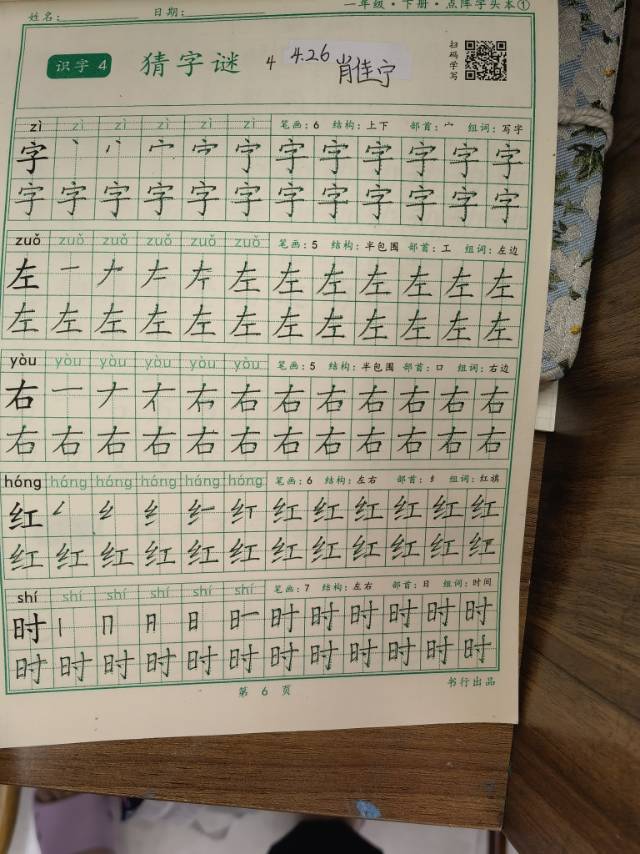 姓名： 日期： 一年级·下册·点阵字头本①
识字 4 猜字谜 4 4.26 肖佳宁 扫码学写
zì zì zì zì zì zì 笔画：6 结构：上下 部首：宀 组词：写字
字 丶 丷 宀 字 字 字 字 字 字 字
字 字 字 字 字 字 字 字 字 字 字 字
zuǒ zuǒ zuǒ zuǒ zuǒ zuǒ 笔画：5 结构：半包围 部首：工 组词：左边
左 一 𠂇 左 左 左 左 左 左 左
左 左 左 左 左 左 左 左 左 左 左 左
yòu yòu yòu yòu yòu yòu 笔画：5 结构：半包围 部首：口 组词：右边
右 一 𠂇 右 右 右 右 右 右 右
右 右 右 右 右 右 右 右 右 右 右 右
hóng hóng hóng hóng hóng hóng 笔画：6 结构：左右 部首：纟 组词：红旗
红 纟 红 红 红 红 红 红
红 红 红 红 红 红 红 红 红 红 红 红
shí shí shí shí shí shí 笔画：7 结构：左右 部首：日 组词：时间
时 丨 冂 日 时 时 时 时 时 时
时 时 时 时 时 时 时 时 时 时 时 时
第 6 页 书行出品